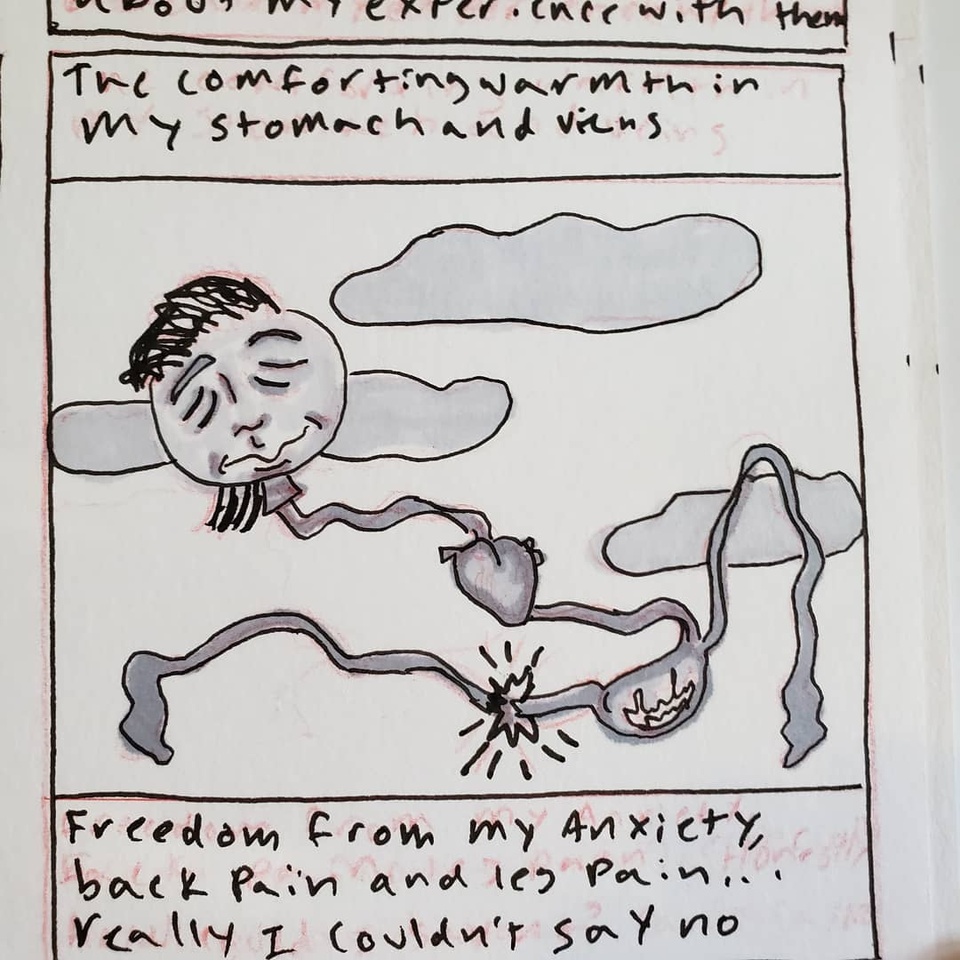 about my experience with them
The comforting warmth in
my stomach and viens
Freedom from my Anxiety,
back pain and leg pain...
really I couldn't say no